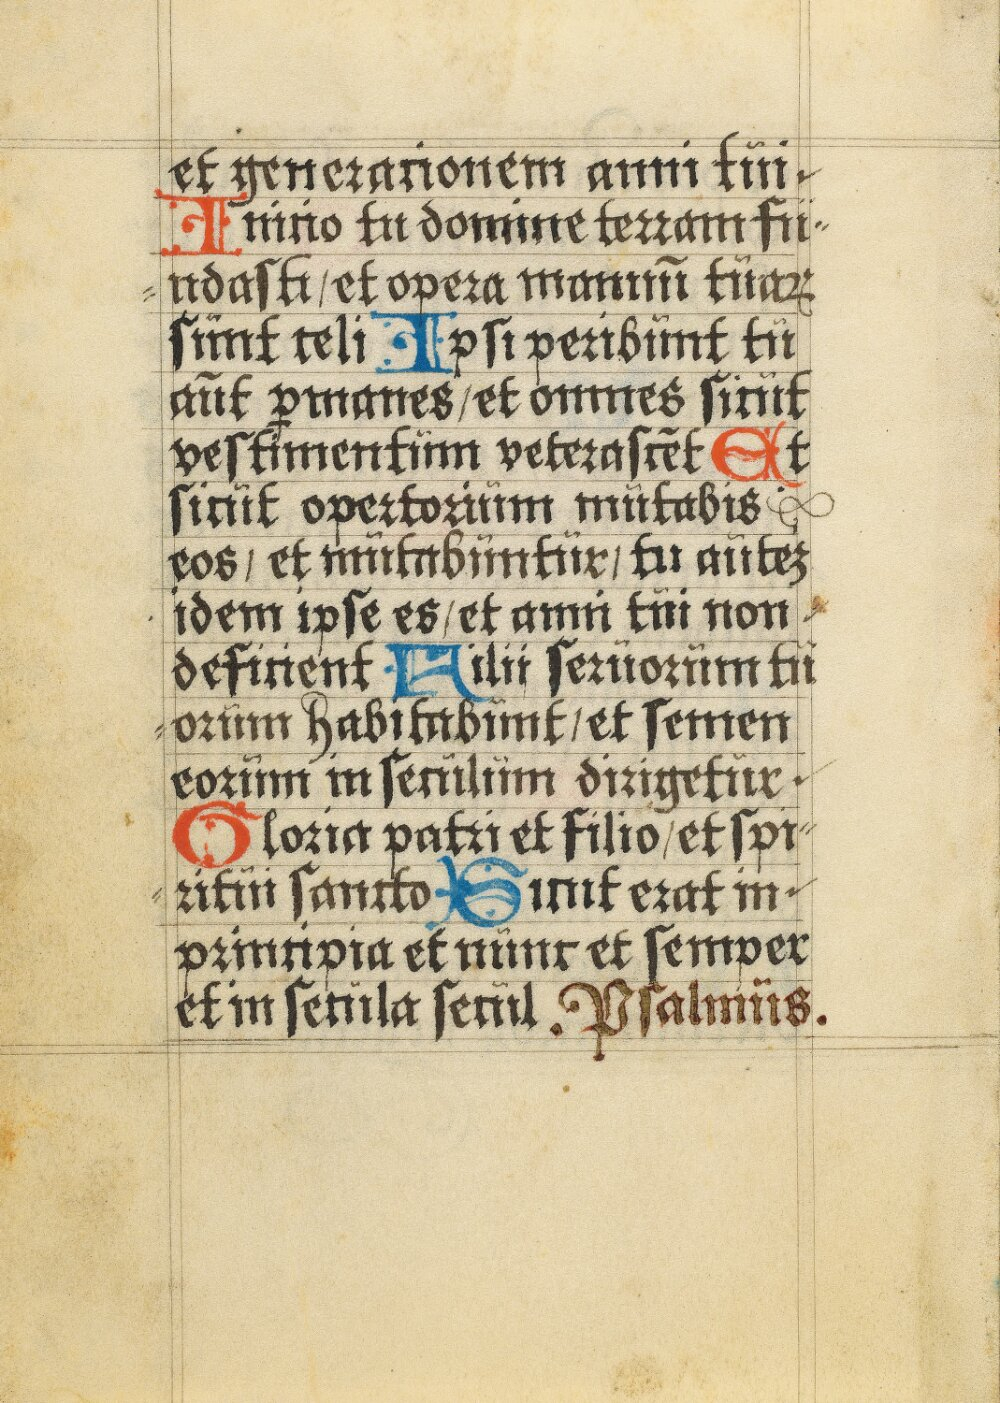 et generacionem anni tui-
Inicio tu domine terram fu-
ndasti/et opera manuū tuarꝝ
sunt celi Ipsi peribunt tu
aūt ꝑmanes/et omnes sicut
vestimentum veterascēt Et
sicut opertorium mutabis
eos/et mutabuntur/tu autez
idem ipse es/et anni tui non
deficient Filii seruorum tu
orum habitabunt/et semen
eorum in seculum dirigetur-
Gloria patri et filio/et spi-
ritui sancto Sicut erat in-
principia et nunc et semper
et in secula secul. Psalmus.